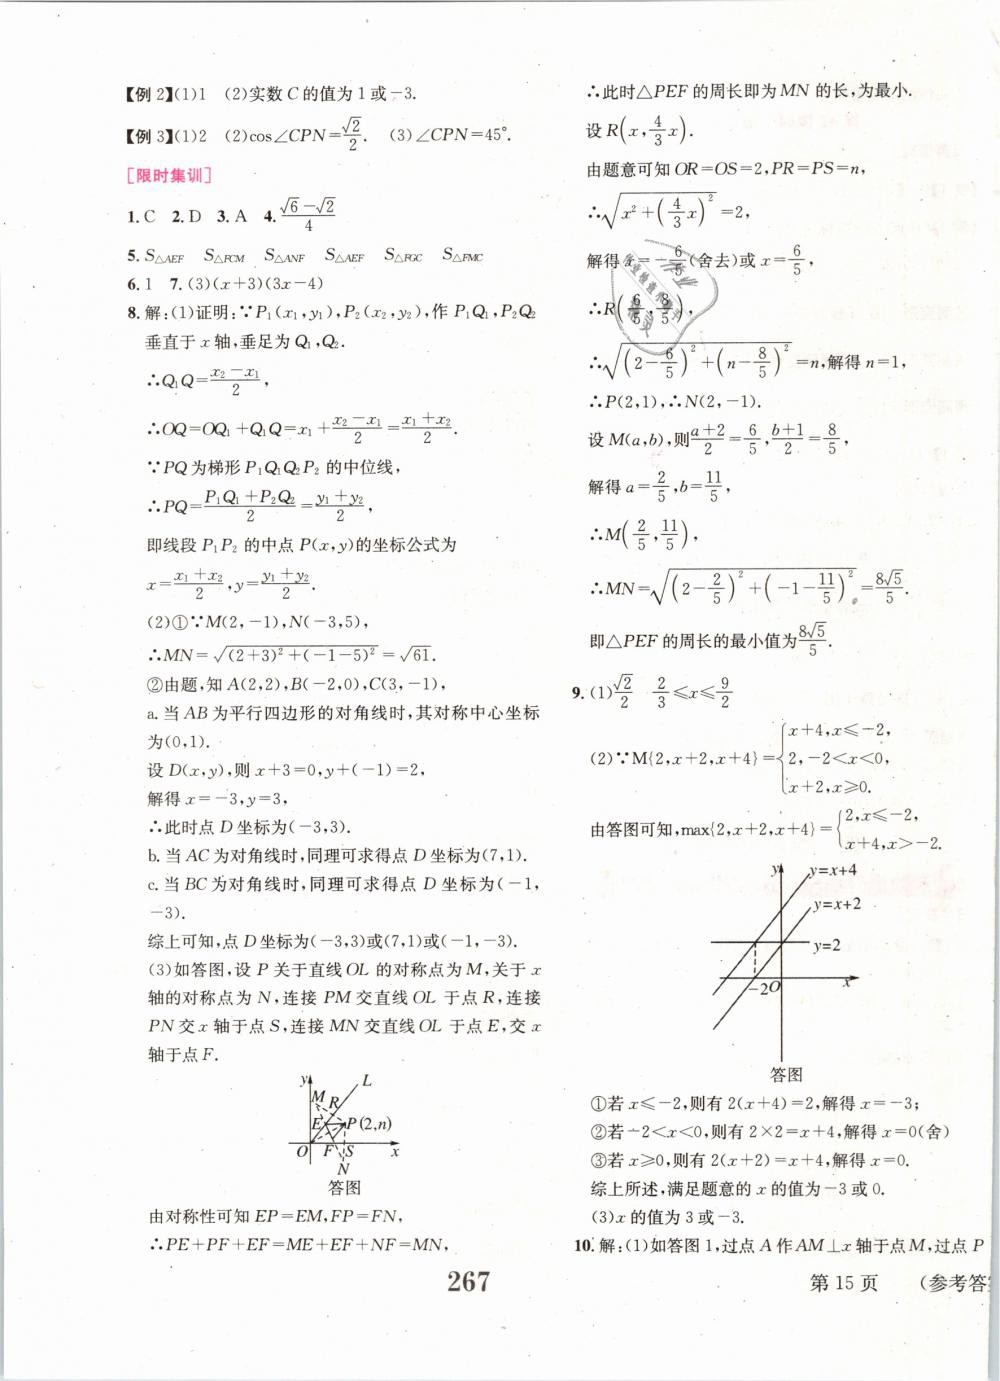 【例2】(1)1 (2)实数C的值为1或-3.
【例3】(1)2 (2)cos∠CPN=√2/2. (3)∠CPN=45°.
[限时集训]
1.C 2.D 3.A 4.(√6-√2)/4
5.S△AEF S△FCM S△ANF S△AEF S△FGC S△FMC
6.1 7.(3)(x+3)(3x-4)
8.解:(1)证明:∵P₁(x₁,y₁),P₂(x₂,y₂),作P₁Q₁,P₂Q₂
垂直于x轴,垂足为Q₁,Q₂.
∴Q₁Q=(x₂-x₁)/2,
∴OQ=OQ₁+Q₁Q=x₁+(x₂-x₁)/2=(x₁+x₂)/2.
∵PQ为梯形P₁Q₁Q₂P₂的中位线,
∴PQ=(P₁Q₁+P₂Q₂)/2=(y₁+y₂)/2,
即线段P₁P₂的中点P(x,y)的坐标公式为
x=(x₁+x₂)/2,y=(y₁+y₂)/2.
(2)①∵M(2,-1),N(-3,5),
∴MN=√((2+3)²+(-1-5)²)=√61.
②由题,知A(2,2),B(-2,0),C(3,-1),
a.当AB为平行四边形的对角线时,其对称中心坐标
为(0,1).
设D(x,y),则x+3=0,y+(-1)=2,
解得x=-3,y=3,
∴此时点D坐标为(-3,3).
b.当AC为对角线时,同理可求得点D坐标为(7,1).
c.当BC为对角线时,同理可求得点D坐标为(-1,
-3).
综上可知,点D坐标为(-3,3)或(7,1)或(-1,-3).
(3)如答图,设P关于直线OL的对称点为M,关于x
轴的对称点为N,连接PM交直线OL于点R,连接
PN交x轴于点S,连接MN交直线OL于点E,交x
轴于点F.
y L
M R
E P(2,n)
O F S x
N
答图
由对称性可知EP=EM,FP=FN,
∴PE+PF+EF=ME+EF+NF=MN,
∴此时△PEF的周长即为MN的长,为最小.
设R(x,4/3x).
由题意可知OR=OS=2,PR=PS=n,
∴√(x²+(4/3x)²)=2,
解得x=-6/5(舍去)或x=6/5,
∴R(6/5,8/5),
∴√((2-6/5)²+(n-8/5)²)=n,解得n=1,
∴P(2,1),∴N(2,-1).
设M(a,b),则(a+2)/2=6/5,(b+1)/2=8/5,
解得a=2/5,b=11/5,
∴M(2/5,11/5),
∴MN=√((2-2/5)²+(-1-11/5)²)=8√5/5.
即△PEF的周长的最小值为8√5/5.
9.(1)√2/2 2/3≤x≤9/2
(2)∵M{2,x+2,x+4}={x+4,x≤-2,
2,-2<x<0,
x+2,x≥0.
由答图可知,max{2,x+2,x+4}={2,x≤-2,
x+4,x>-2.
y y=x+4
y=x+2
y=2
-2 O x
答图
①若x≤-2,则有2(x+4)=2,解得x=-3;
②若-2<x<0,则有2×2=x+4,解得x=0(舍)
③若x≥0,则有2(x+2)=x+4,解得x=0.
综上所述,满足题意的x的值为-3或0.
(3)x的值为3或-3.
10.解:(1)如答图1,过点A作AM⊥x轴于点M,过点P
267
第15页 (参考答